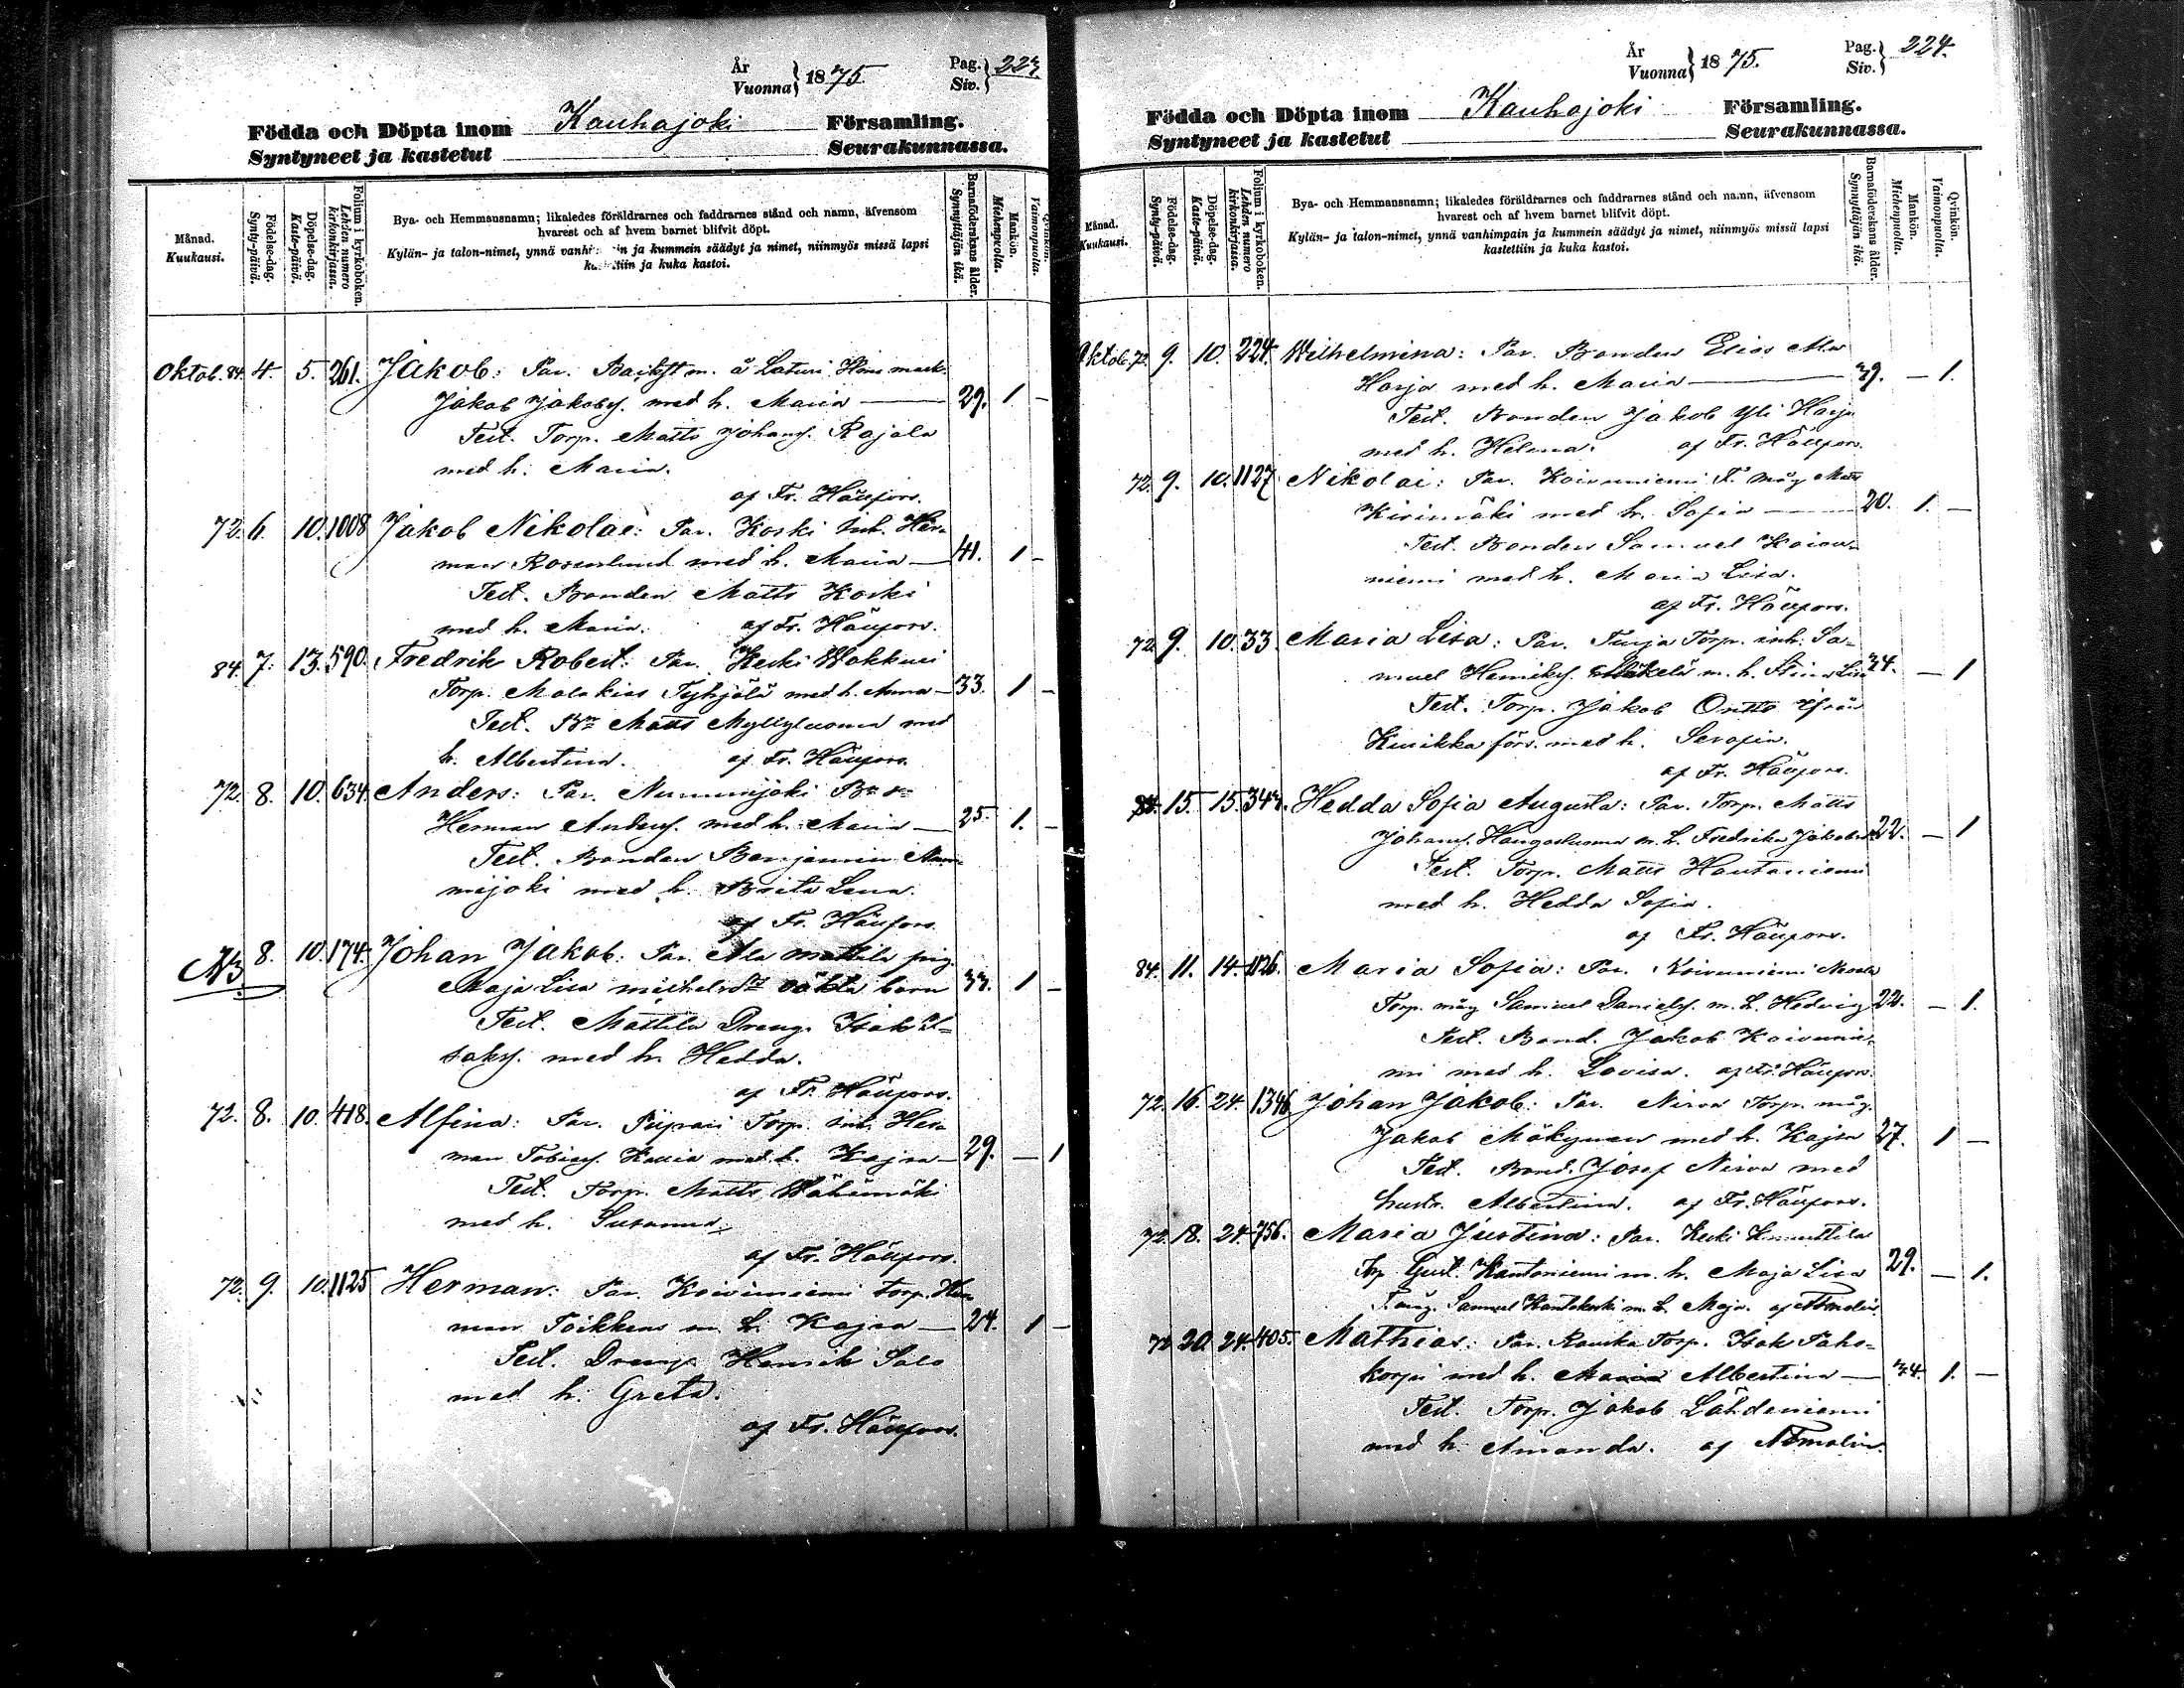 År
Vuonna } 1875.
Pag.
Siv. } 223
Födda och Döpta inom Kauhajoki Församling.
Syntyneet ja kastetut Seurakunnassa.
Månad.
Kuukausi.
Födelse-dag.
Synty-päivä.
Döpelse-dag.
Kaste-päivä.
Folium i kyrkoboken.
Lehden numero kirkonkirjassa.
Bya- och Hemmansnamn; likaledes föräldrarnes och faddrarnes stånd och namn, äfvensom
hvarest och af hvem barnet blifvit döpt.
Kylän- ja talon-nimet, ynnä ja kummein säädyt ja nimet, niinmyös missä lapsi
ja kuka kastoi.
Barnaföderskans ålder.
Synnyttäjän ikä.
Mankön.
Miehenpuolta.
Qvinkön.
Vaimonpuolta.
Oktob. 84. 4. 5. 261. Jakob: Par. å Laturi
Jakob Jakobs. med h. Maria — 29. 1. -
Test. Torp. Matts Johans. Rajala
med h. Maria.
af Fr. Häufors.
72. 6. 10. 1008 Jakob Nikolae: Par. Koski Inh. Her-
man Rosenlund med h. Maria — 41. 1 -
Test. Bonden Matts Koski
med h. Maria. af Fr. Häufors.
84. 7. 13. 590. Fredrik Robert: Par. Keski Wakkuri
Torp. Malakias med h. Anna — 33. 1 -
Test. Bn Matts Myllyluoma med
h. Albertina. af Fr. Häufors.
72. 8. 10. 634. Anders: Par. Nummijoki Bn
Herman Anders. med h. Maria — 25. 1. -
Test. Bonden Benjamin Num-
mijoki med h. Brita Lena.
af Fr. Häufors.
NB. 8. 10. 174. Johan Jakob: Par. Ala Mattila pig.
Maja Lisa Michelsdr oäkta barn 33. 1 -
Test. Mattila Dreng. Isak I-
saks. med h. Hedda.
af Fr. Häufors.
72. 8. 10. 418. Alfina: Par. Piipari Torp. inh. Her-
man Tobias. med h. Kajsa — 29. — 1
Test. Torp. Matts Wähämäki
med h. Susanna.
af Fr. Häufors.
72. 9. 10. 1125 Herman: Par. Koivuniemi Torp. Her-
man Toikkas m. h. Kajsa — 24. 1 -
Test. Dreng Henrik Salo
med h. Greta.
af Fr. Häufors.
År
Vuonna } 1875.
Pag.
Siv. } 224.
Födda och Döpta inom Kauhajoki Församling.
Syntyneet ja kastetut Seurakunnassa.
Månad.
Kuukausi.
Födelse-dag.
Synty-päivä.
Döpelse-dag.
Kaste-päivä.
Folium i kyrkoboken.
Lehden numero kirkonkirjassa.
Bya- och Hemmansnamn; likaledes föräldrarnes och faddrarnes stånd och namn, äfvensom
hvarest och af hvem barnet blifvit döpt.
Kylän- ja talon-nimet, ynnä vanhimpain ja kummein säädyt ja nimet, niinmyös missä lapsi
kastettiin ja kuka kastoi.
Barnaföderskans ålder.
Synnyttäjän ikä.
Mankön.
Miehenpuolta.
Qvinkön.
Vaimonpuolta.
Oktob. 72. 9. 10. 224. Wilhelmina: Par. Bonden Elias Ala
Harja med h. Maria — 39. — 1.
Test. Bonden Jakob Yli Harja
med h. Helena. af Fr. Häufors.
72. 9. 10. 1127 Nikolai: Par. Koivuniemi T. måg Matts
Kirimäki med h. Sofia — 20. 1. —
Test. Bonden Samuel Koivu-
niemi med h. Maria Lisa.
af Fr. Häufors.
72. 9. 10. 33. Maria Lisa: Par. Turja Torp. inh. Sa-
muel Henriks. Mäkelä m. h. Stina Lisa 34. — 1
Test. Torp. Jakob Ontto ifrån
Kurikka förs. med h. Serafia.
af Fr. Häufors.
84. 15. 15. 343. Hedda Sofia Augusta: Par. Torp. Matts
Johans. Hangasluoma m. h. Fredrika Jakobsdr 22. — 1
Test. Torp. Matts Hautaniemi
med h. Hedda Sofia.
af Fr. Häufors.
84. 11. 14. 1126. Maria Sofia: Par. Koivuniemi
Torp. måg Samuel Daniels. m. h. Hedvig 22. — 1.
Test. Bond. Jakob Koivunie-
mi med h. Lovisa. af Fr. Häufors.
72. 16. 24. 1346 Johan Jakob: Par. Nirva Torp. måg.
Jakob Mäkynen med h. Kajsa 27. 1 —
Test. Bond. Josef Nirva med
hustr. Albertina. af Fr. Häufors.
72. 18. 24. 756. Maria Justina: Par. Keski Knuuttila
Torp Gust. Hautaniemi m. h. Maja Lisa 29. — 1.
Samuel m. h. Maja. af
72. 20. 24. 405. Mathias: Par. Rauska Torp. Isak Paho-
korpi med h. Maria Albertina — 34. 1. —
Test. Torp. Jakob Lähdeniemi
med h. Amanda. af